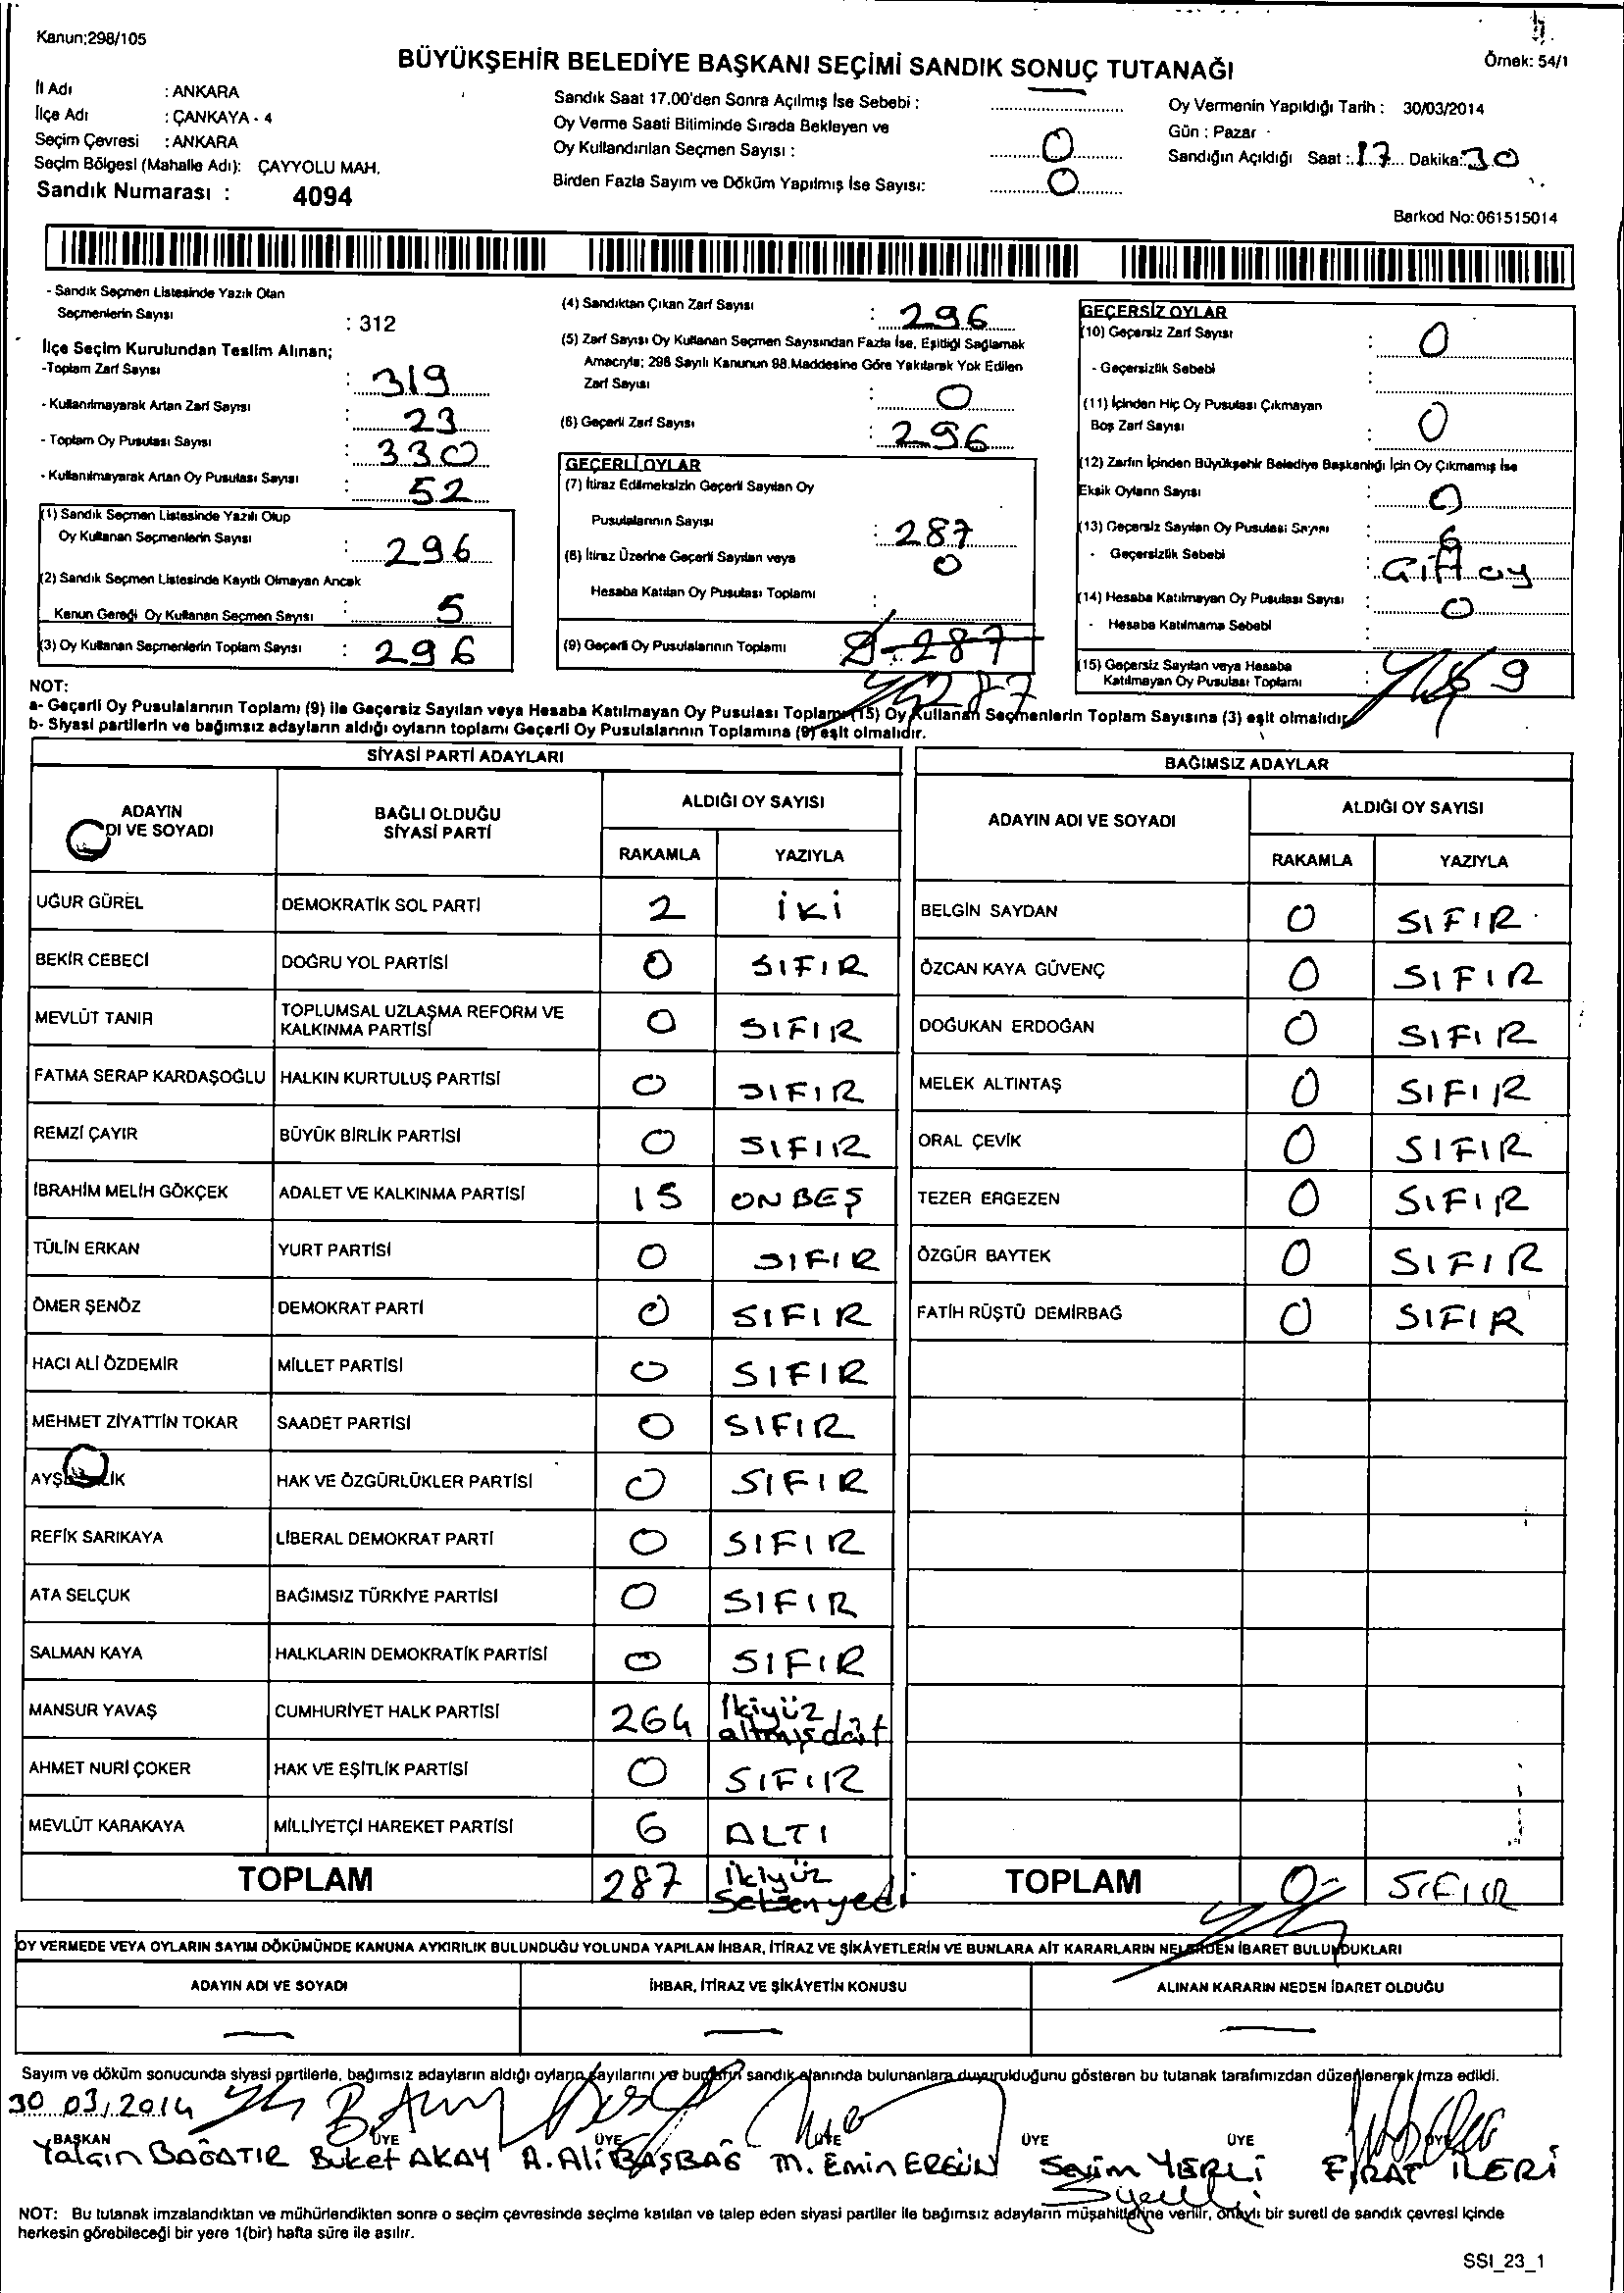 Kanun;298/105
BÜYÜKŞEHİR BELEDİYE BAŞKANI SEÇİMİ SANDIK SONUÇ TUTANAĞI
Örnek: 54/1
İl Adı : ANKARA
İlçe Adı : ÇANKAYA - 4
Seçim Çevresi : ANKARA
Seçim Bölgesi (Mahalle Adı): ÇAYYOLU MAH.
Sandık Numarası : 4094
Sandık Saat 17.00'den Sonra Açılmış İse Sebebi : —
Oy Verme Saati Bitiminde Sırada Bekleyen ve
Oy Kullandırılan Seçmen Sayısı : 0
Birden Fazla Sayım ve Döküm Yapılmış İse Sayısı: 0
Oy Vermenin Yapıldığı Tarih : 30/03/2014
Gün : Pazar
Sandığın Açıldığı Saat : 17 Dakika: 30
Barkod No:061515014
- Sandık Seçmen Listesinde Yazılı Olan
Seçmenlerin Sayısı : 312
İlçe Seçim Kurulundan Teslim Alınan;
-Toplam Zarf Sayısı : 319
- Kullanılmayarak Artan Zarf Sayısı : 23
- Toplam Oy Pusulası Sayısı : 330
- Kullanılmayarak Artan Oy Pusulası Sayısı : 52
(1) Sandık Seçmen Listesinde Yazılı Olup
Oy Kullanan Seçmenlerin Sayısı : 296
(2) Sandık Seçmen Listesinde Kayıtlı Olmayan Ancak
Kanun Gereği Oy Kullanan Seçmen Sayısı : 5
(3) Oy Kullanan Seçmenlerin Toplam Sayısı : 296
(4) Sandıktan Çıkan Zarf Sayısı : 296
(5) Zarf Sayısı Oy Kullanan Seçmen Sayısından Fazla İse, Eşitliği Sağlamak
Amacıyla; 298 Sayılı Kanunun 98.Maddesine Göre Yakılarak Yok Edilen
Zarf Sayısı : 0
(6) Geçerli Zarf Sayısı : 296
GEÇERLİ OYLAR
(7) İtiraz Edilmeksizin Geçerli Sayılan Oy
Pusulalarının Sayısı : 287
(8) İtiraz Üzerine Geçerli Sayılan veya 0
Hesaba Katılan Oy Pusulası Toplamı :
(9) Geçerli Oy Pusulalarının Toplamı 287
287
GEÇERSİZ OYLAR
(10) Geçersiz Zarf Sayısı : 0
- Geçersizlik Sebebi :
(11) İçinden Hiç Oy Pusulası Çıkmayan
Boş Zarf Sayısı : 0
(12) Zarfın İçinden Büyükşehir Belediye Başkanlığı İçin Oy Çıkmamış İse
Eksik Oyların Sayısı : 0
(13) Geçersiz Sayılan Oy Pusulası Sayısı :
- Geçersizlik Sebebi : Gift oy
(14) Hesaba Katılmayan Oy Pusulası Sayısı : 0
- Hesaba Katılmama Sebebi :
(15) Geçersiz Sayılan veya Hesaba
Katılmayan Oy Pusulası Toplamı : 9
NOT:
a- Geçerli Oy Pusulalarının Toplamı (9) ile Geçersiz Sayılan veya Hesaba Katılmayan Oy Pusulası Toplamı (15) Oy Kullanan Seçmenlerin Toplam Sayısına (3) eşit olmalıdır.
b- Siyasi partilerin ve bağımsız adayların aldığı oyların toplamı Geçerli Oy Pusulalarının Toplamına (9) eşit olmalıdır.
SİYASİ PARTİ ADAYLARI
BAĞIMSIZ ADAYLAR
ADAYIN
DI VE SOYADI
BAĞLI OLDUĞU
SİYASİ PARTİ
ALDIĞI OY SAYISI
RAKAMLA YAZIYLA
ADAYIN ADI VE SOYADI
ALDIĞI OY SAYISI
RAKAMLA YAZIYLA
UĞUR GÜREL DEMOKRATİK SOL PARTİ 2 İKİ BELGİN SAYDAN 0 SIFIR
BEKİR CEBECİ DOĞRU YOL PARTİSİ 0 SIFIR ÖZCAN KAYA GÜVENÇ 0 SIFIR
MEVLÜT TANIR TOPLUMSAL UZLAŞMA REFORM VE
KALKINMA PARTİSİ 0 SIFIR DOĞUKAN ERDOĞAN 0 SIFIR
FATMA SERAP KARDAŞOĞLU HALKIN KURTULUŞ PARTİSİ 0 SIFIR MELEK ALTINTAŞ 0 SIFIR
REMZİ ÇAYIR BÜYÜK BİRLİK PARTİSİ 0 SIFIR ORAL ÇEVİK 0 SIFIR
İBRAHİM MELİH GÖKÇEK ADALET VE KALKINMA PARTİSİ 15 ONBEŞ TEZER ERGEZEN 0 SIFIR
TÜLİN ERKAN YURT PARTİSİ 0 SIFIR ÖZGÜR BAYTEK 0 SIFIR
ÖMER ŞENÖZ DEMOKRAT PARTİ 0 SIFIR FATİH RÜŞTÜ DEMİRBAĞ 0 SIFIR
HACI ALİ ÖZDEMİR MİLLET PARTİSİ 0 SIFIR
MEHMET ZİYATTİN TOKAR SAADET PARTİSİ 0 SIFIR
HAK VE ÖZGÜRLÜKLER PARTİSİ 0 SIFIR
REFİK SARIKAYA LİBERAL DEMOKRAT PARTİ 0 SIFIR
ATA SELÇUK BAĞIMSIZ TÜRKİYE PARTİSİ 0 SIFIR
SALMAN KAYA HALKLARIN DEMOKRATİK PARTİSİ 0 SIFIR
MANSUR YAVAŞ CUMHURİYET HALK PARTİSİ 264 İkiyüz
altmışdört
AHMET NURİ ÇOKER HAK VE EŞİTLİK PARTİSİ 0 SIFIR
MEVLÜT KARAKAYA MİLLİYETÇİ HAREKET PARTİSİ 6 ALTI
TOPLAM 287 İkiyüz
Seksenyedi
TOPLAM 0 SIFIR
OY VERMEDE VEYA OYLARIN SAYIM DÖKÜMÜNDE KANUNA AYKIRILIK BULUNDUĞU YOLUNDA YAPILAN İHBAR, İTİRAZ VE ŞİKÂYETLERİN VE BUNLARA AİT KARARLARIN NELERDEN İBARET BULUNDUKLARI
ADAYIN ADI VE SOYADI İHBAR, İTİRAZ VE ŞİKÂYETİN KONUSU ALINAN KARARIN NEDEN İBARET OLDUĞU
— — —
Sayım ve döküm sonucunda siyasi partilerle, bağımsız adayların aldığı oyların sayılarını ve bunların sandık alanında bulunanlara duyurulduğunu gösteren bu tutanak tarafımızdan düzenlenerek imza edildi.
30 03/2014
BAŞKAN ÜYE ÜYE ÜYE ÜYE ÜYE ÜYE
Yalçın BAĞATIR Buket AKAY A. Ali BAŞBAĞ M. Emin ERGÜN Seyim YERLİ FIRAT İLERİ
NOT: Bu tutanak imzalandıktan ve mühürlendikten sonra o seçim çevresinde seçime katılan ve talep eden siyasi partiler ile bağımsız adayların müşahitlerine verilir, onaylı bir sureti de sandık çevresi içinde
herkesin görebileceği bir yere 1(bir) hafta süre ile asılır.
SSI_23_1